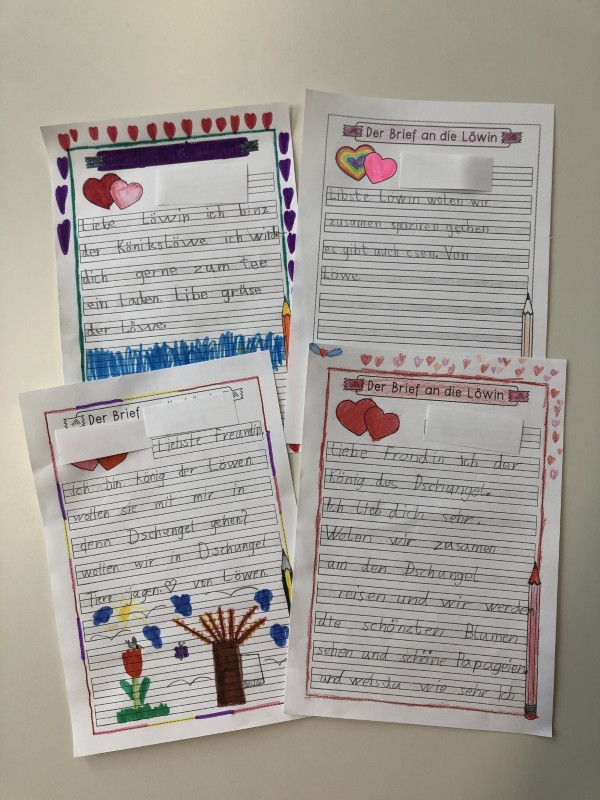 Liebe Löwin ich binz
der Könikslöwe ich würde
dich gerne zum tee
ein Laden. Libe grüse
der Löwe.
Der Brief an die Löwin
Libste Löwin wolen wir
zusamen spaziren gechen
es gibt auch esen. Von
Löwe
Der Brief
Liebste Freundin,
Ich bin König der Löwen.
wollen sie mit mir in
denn Dschungel gehen?
wollen wir in Dschungel
Tiere jagen.♡ von Löwen
Der Brief an die Löwin
Liebe Freudin ich der
König des Dschangel.
Ich lieb dich sehr.
Wolen wir zusamen
um den Dschangel
reisen und wir werden
die schönzten Blumen
sehen und schöne Papageien
und welsdu wie sehr ich